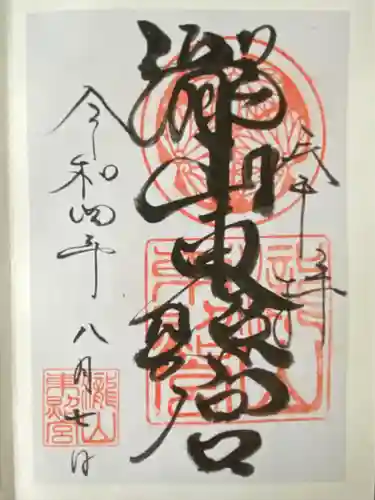 瀧山東照宮
令和四年
八月七日
瀧山
東照宮